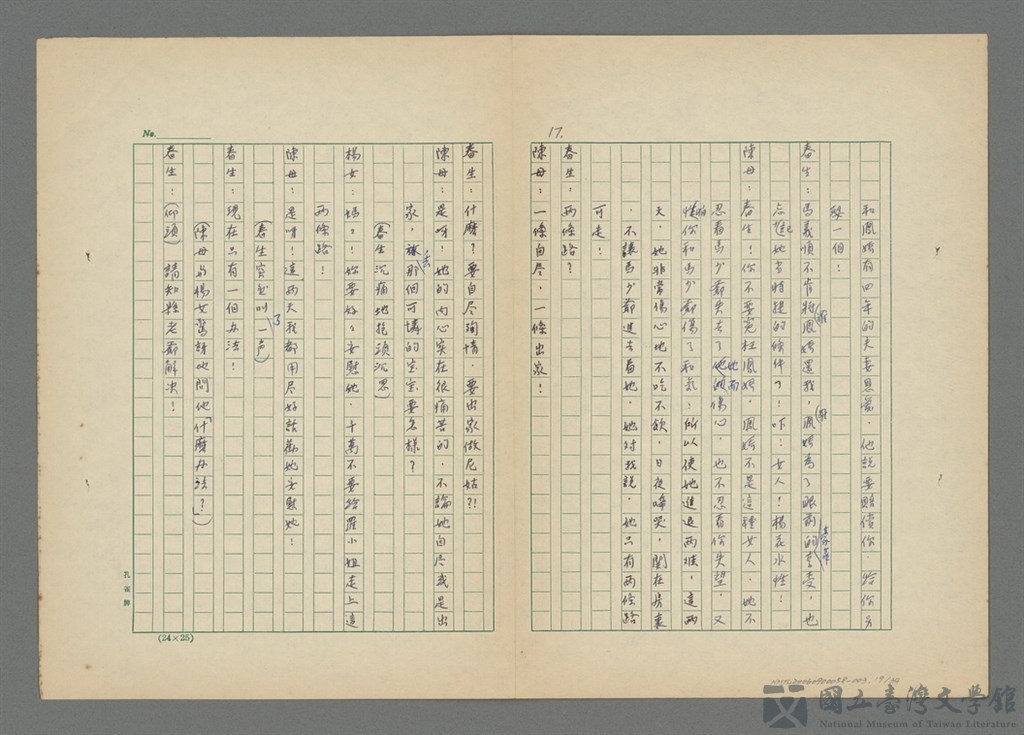 17.
和鳳嬌有四年的夫妻恩爱，他說要賠償你，给你另
娶一個！
春生：馬義順不肯把鳳嬌還我，鳳嬌為了眼前的享受，也
忘記她當時提的條件了！吓！女人！楊花水性！
陳母：春生！你不要冤枉鳳嬌，鳳嬌不是這種女人，她不
忍看馬少爺失去了她而傷心，也不忍看你失望，又
怕你和馬少爺傷了和氣；所以使她進退兩难，這兩
天，她非常傷心地不吃不飲，日夜啼哭，関在房裏
，不讓馬少爺進去看她，她对我說，她只有兩條路
可走！
春生，兩條路？
陳母：一條自尽，一條出家！
春生：什麼？要自尽殉情，要出家做尼姑？！
陳母：是呀！她的内心实在很痛苦的，不論她自尽或是出
家，丢那個可憐的宝宝要怎樣？
（春生沉痛地抱頭沉思）
楊女：媽：！妳要好：安慰他，千萬不要给羅小姐走上這
兩條路！
陳母：是呀！這两天我都用尽好話勸她安慰她！
（春生突然叫了一声）
春生：現在只有一個办法！
（陳母与楊女驚訝地問他「什麼办法？」）
春生：（仰頭）請知縣老爺解决！
No.
(24×25)
孔雀牌
國立臺灣文學館
National Museum of Taiwan Literature